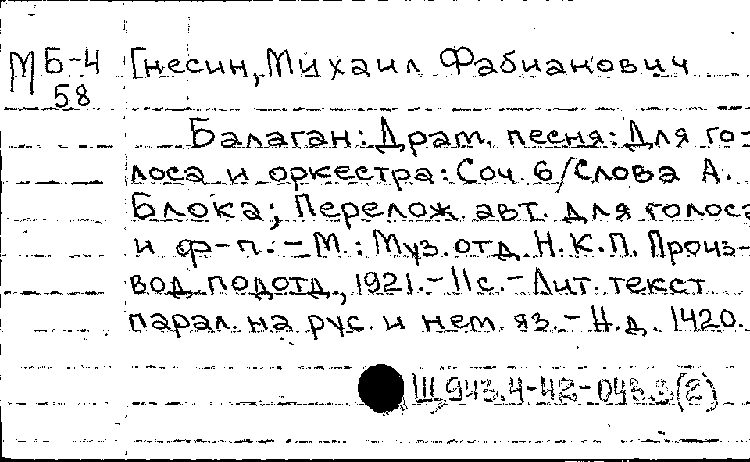 М Б-4 Гнесин, Михаил Фабианович
58
Балаган: Драт. песня: Для го=
лоса и оркестра: Соч. 6/Слова А.
Блока; Перелож. авт. для голоса
и ф-п. - М.: Муз. отд. Н.К.П. Произ-
вод. подотд., 1921. - 11с. - Лит. текст
парал. на рус. и нем. яз. - Н.д. 1420.
Щ 943.4-42-043.3(2)